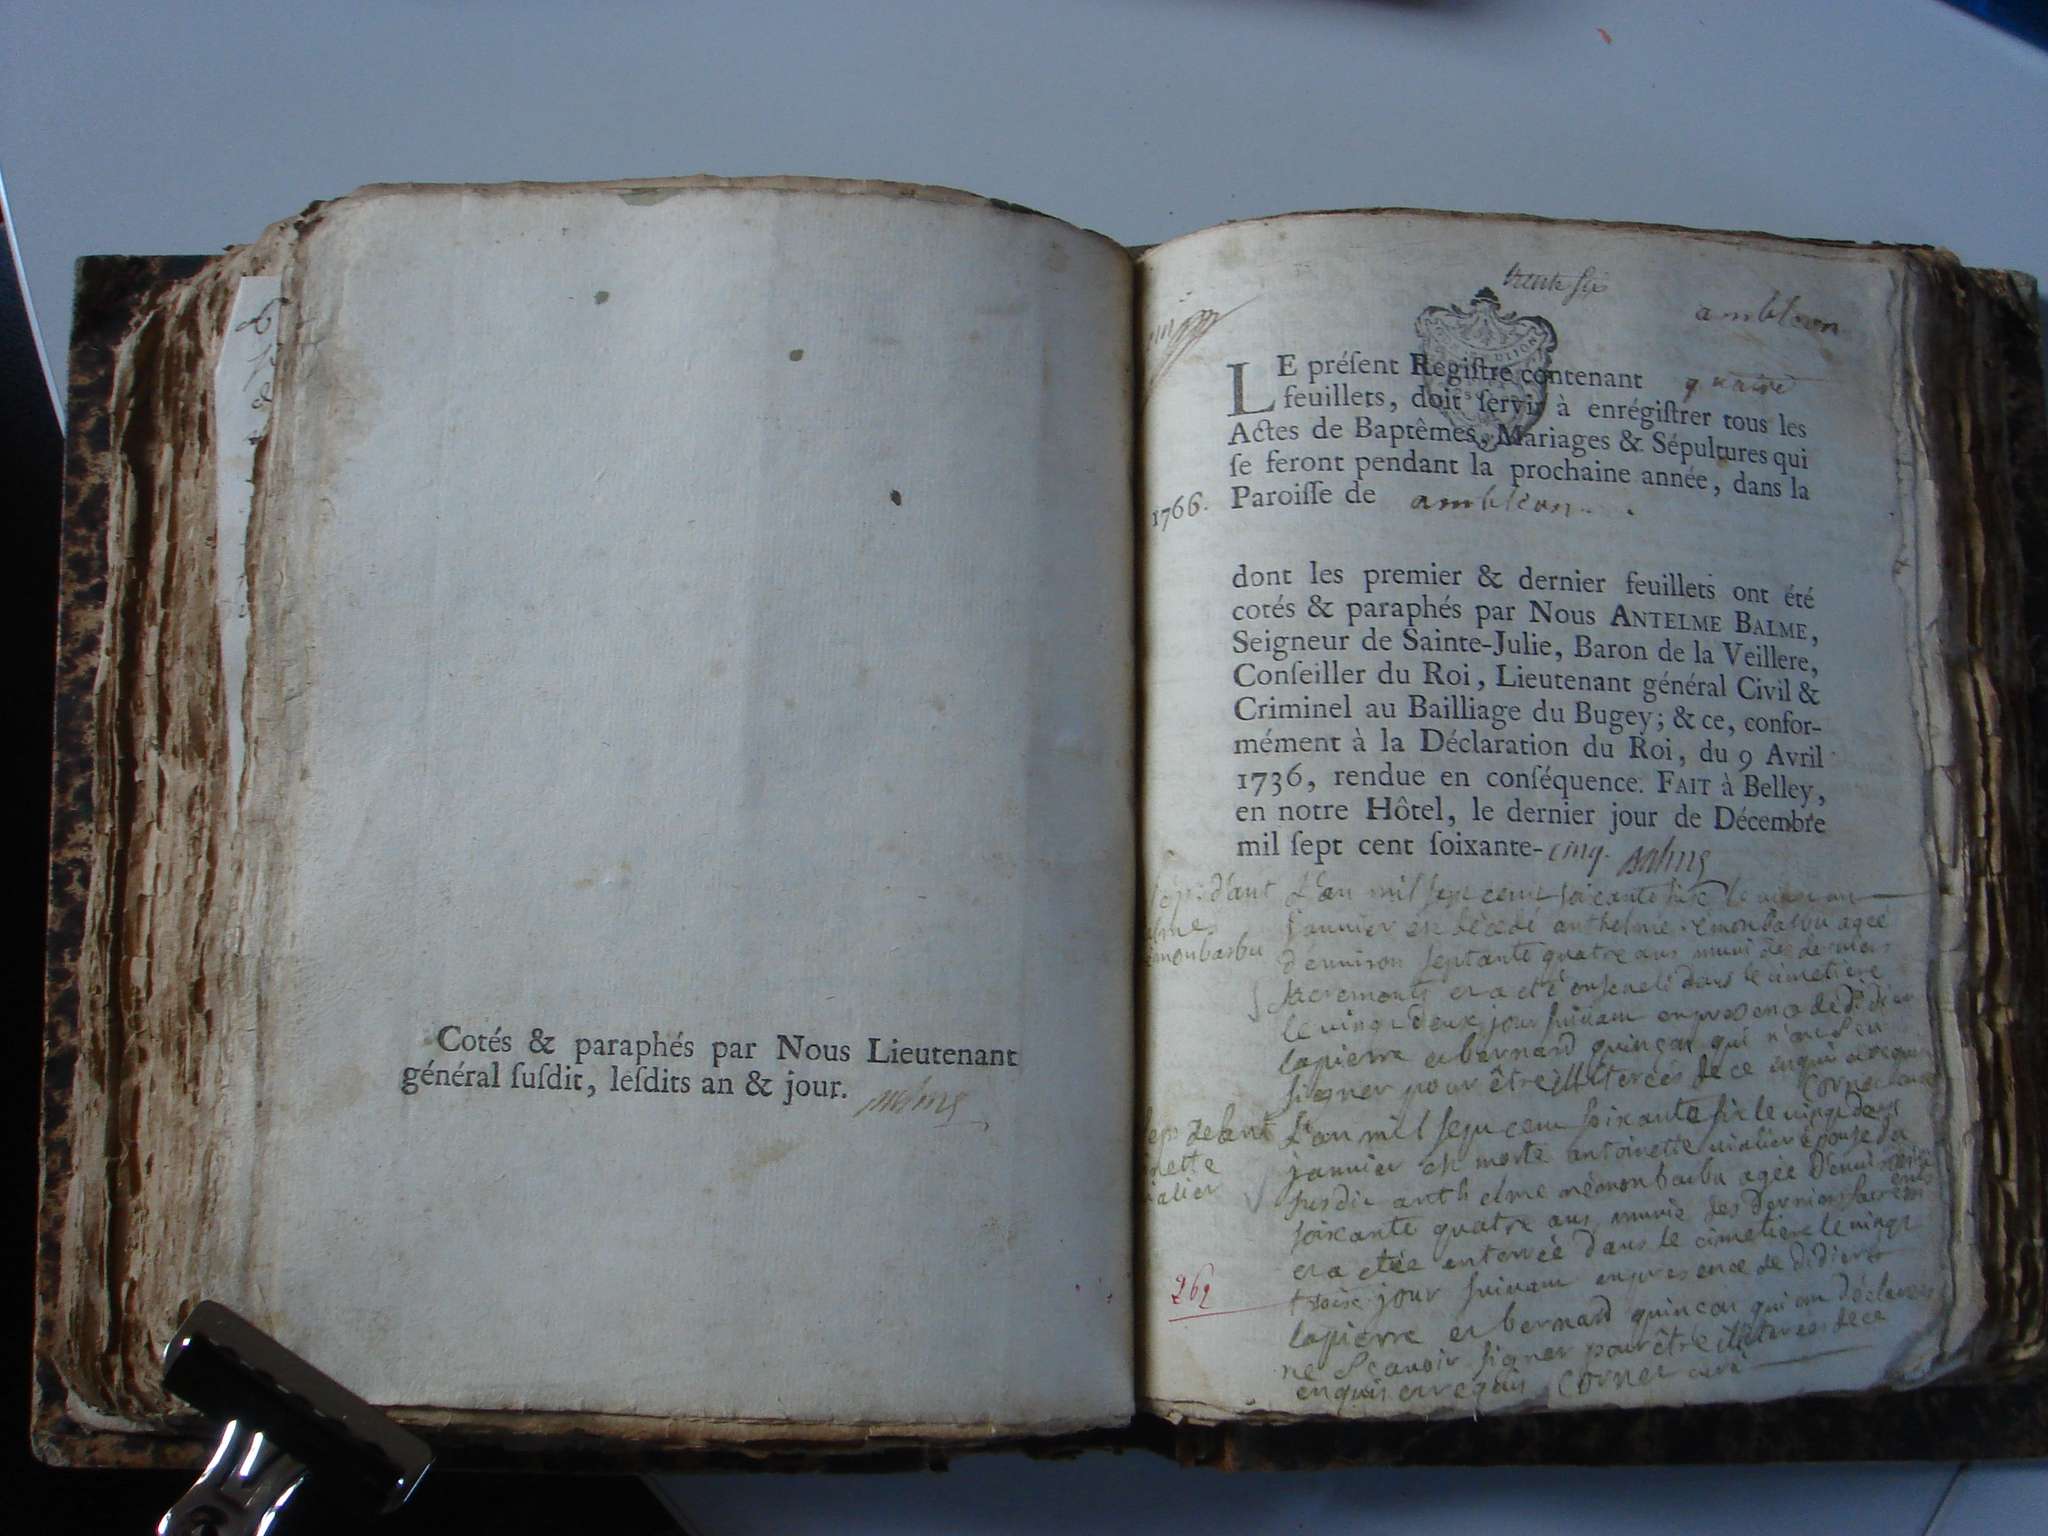 Cotés & paraphés par Nous Lieutenant
général ſuſdit, leſdits an & jour.
trente six
ambleon
LE préſent Regiſtre contenant quatre
feuillets, doit ſervir à enrégiſtrer tous les
Actes de Baptêmes, Mariages & Sépultures qui
ſe feront pendant la prochaine année, dans la
1766. Paroiſſe de ambleon.
dont les premier & dernier feuillets ont été
cotés & paraphés par Nous ANTELME BALME,
Seigneur de Sainte-Julie, Baron de la Veillere,
Conſeiller du Roi, Lieutenant général Civil &
Criminel au Bailliage du Bugey; & ce, confor-
mément à la Déclaration du Roi, du 9 Avril
1736, rendue en conſéquence. FAIT à Belley,
en notre Hôtel, le dernier jour de Décembre
mil ſept cent ſoixante-cinq. Balme
L'an mil sept cent soixante six le vingt un
janvier est décédé anthelme émonbarbu agé
d'environ septante quatre ans muni des derniers
sacrements et a été enseveli dans le cimetière
le vingt deux jour suivant en presence de
lapierre et bernard quinçon qui n'ont sceu
signer pour être illiterés de ce enquis et requis
Cornet curé
L'an mil sept cent soixante six le vingt deux
janvier est morte antoinette vialier épouse du
susdit anthelme émonbarbu agée d'environ
soixante quatre ans munie des derniers sacrements
et a étée enterrée dans le cimetière le vingt
trois jour suivant en presence de didier
262
lapierre et bernard quinçon qui ont déclaré
ne sçavoir signer pour être illiterés de ce
enquis et requis Cornet curé